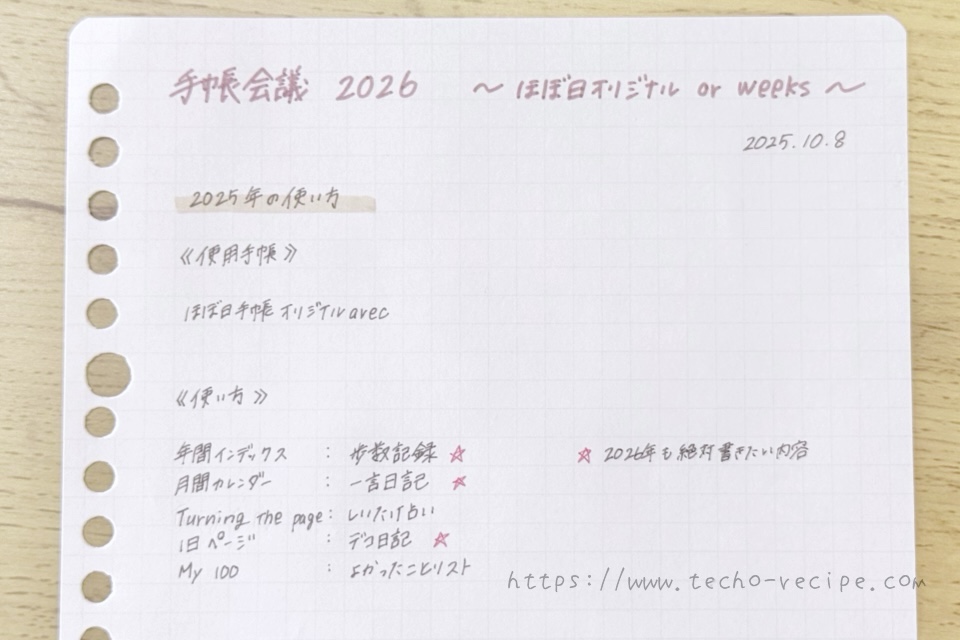 手帳会議 2026 〜ほぼ日オリジナル or weeks〜
2025.10.8
2025年の使い方
《使用手帳》
ほぼ日手帳 オリジナル avec
《使い方》
年間インデックス : 歩数記録 ☆ ☆ 2026年も絶対書きたい内容
月間カレンダー : 一言日記 ☆
Turning the page : しいたけ占い
1日ページ : デコ日記 ☆
My 100 : よかったことリスト
https://www.techo-recipe.com